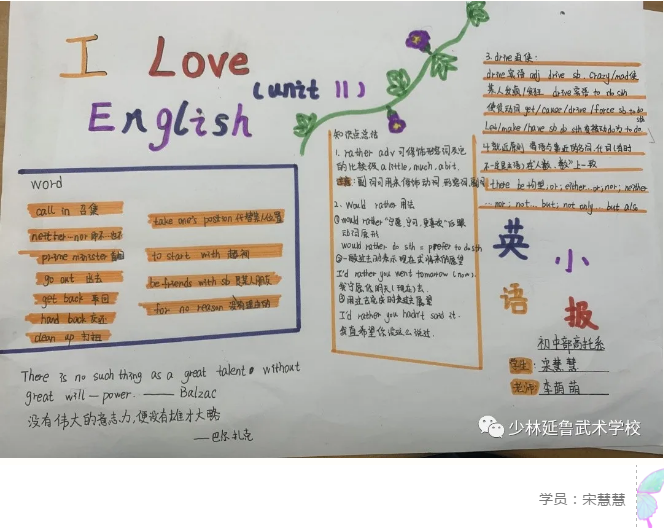 I Love
English (unit 11)
word
call in 召集
neither…nor 既不…也不
prime minister 首相
go out 出去
get back 返回
hand back 交还
clean up 打扫
take one's position 代替某人位置
to start with 起初
be friends with sb 是某人朋友
for no reason
There is no such thing as a great talent without
great will-power. —— Balzac
没有伟大的意志力,便没有雄才大略
—巴尔扎克
知识点总结
1. rather adv 可修饰形容词及它
的比较级 a little, much, a bit.
注意:副词可用来修饰动词 形容词,副词
2. Would rather 用法
① would rather "宁愿,宁可,更喜欢"后跟
动词原形
would rather do sth = prefer to do sth
②一般过去时表示现在或将来的愿望
I'd rather you went tomorrow (now).
我宁愿你明天(现在)去.
③用过去完成时表过去愿望
I'd rather you hadn't said it.
我真希望你没这么说过.
3. drive 迫使:
drive 宾语 adj drive sb. crazy/mad 使
某人发疯/发狂 drive 宾语 to do sth
使役动词 get/cause/drive/force sb to do sth
Let/make/have sb do sth 变被动 do 为 to do
4. 就近原则 谓语与靠近的名词、代词(有时
不一定是主语)在"人数、数"上一致
there be 句型, or; either…or; nor; neither
…nor; not…but; not only…but als
英语小报
初中部高铁系
学生: 宋慧慧
老师: 李萌萌
少林延鲁武术学校
学员:宋慧慧